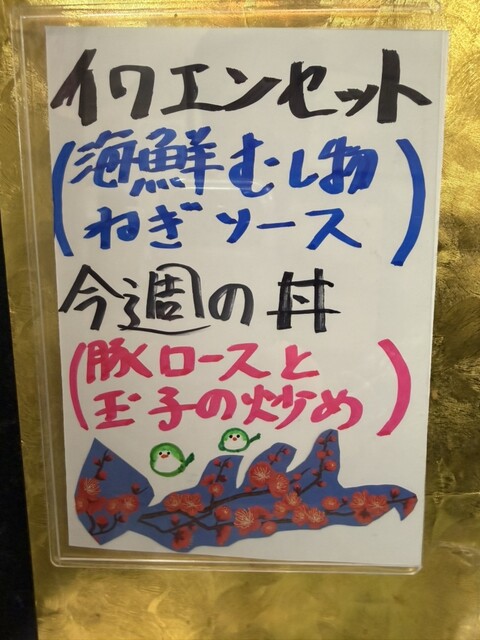 イワエンセット
(海鮮むし物
ねぎソース)
今週の丼
(豚ロースと
玉子の炒め)